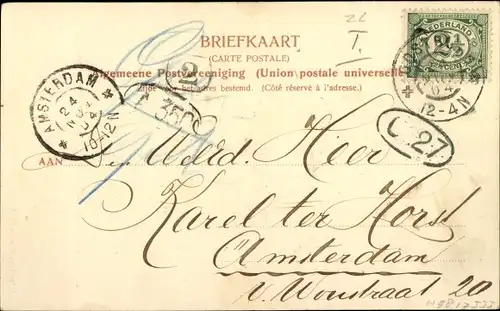 BRIEFKAART
(CARTE POSTALE)
Algemeene Postvereeniging (Union postale universelle
Zijde voor het adres bestemd. (Côté réservé à l'adresse.)
NEDERLAND
2½
CENT
12-4N
AMSTERDAM
24
10-12N
2
T.
C 27
AAN
Weled. Heer
Karel ter Horst
Amsterdam
V. Woustraat 20